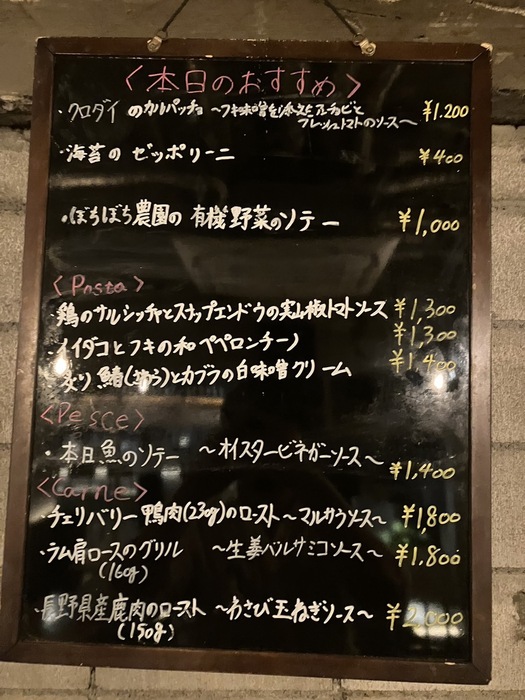 〈本日のおすすめ〉
・クロダイ のカルパッチョ 〜フキ味噌を添えた アンチョビと ¥1.200
フレッシュトマトのソース〜
・海苔の ゼッポリーニ ¥400
・ぽちぽち農園の 有機野菜のソテー ¥1,000
〈Pasta〉
・鶏のサルシッチャとスナップエンドウの実山椒トマトソース ¥1,300
・イイダコとフキの和ペペロンチーノ ¥1,300
・炙り鰆(さわら)とカブラの白味噌クリーム ¥1,400
〈Pesce〉
・本日魚のソテー 〜オイスタービネガーソース〜 ¥1,400
〈Carne〉
・チェリバリー鴨肉(230g)のロースト〜マルサラソース〜 ¥1,800
・ラム肩ロースのグリル 〜生姜バルサミコソース〜 ¥1,800
(160g)
・長野県産鹿肉のロースト 〜わさび玉ねぎソース〜 ¥2,000
(150g)